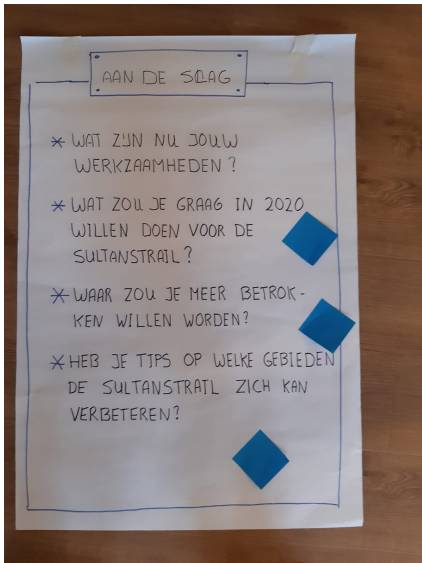 AAN DE SLAG
* WAT ZIJN NU JOUW
WERKZAAMHEDEN?
* WAT ZOU JE GRAAG IN 2020
WILLEN DOEN VOOR DE
SULTANSTRAIL?
* WAAR ZOU JE MEER BETROK-
KEN WILLEN WORDEN?
* HEB JE TIPS OP WELKE GEBIEDEN
DE SULTANSTRAIL ZICH KAN
VERBETEREN?